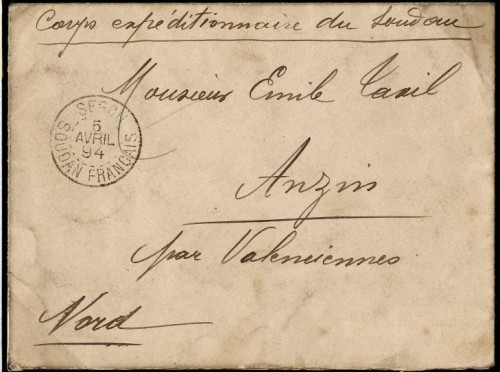 Corps expéditionnaire du Soudan
Monsieur Emile Taxil
SEGOU
5
AVRIL
94
SOUDAN FRANCAIS
Anzin
par Valenciennes
Nord